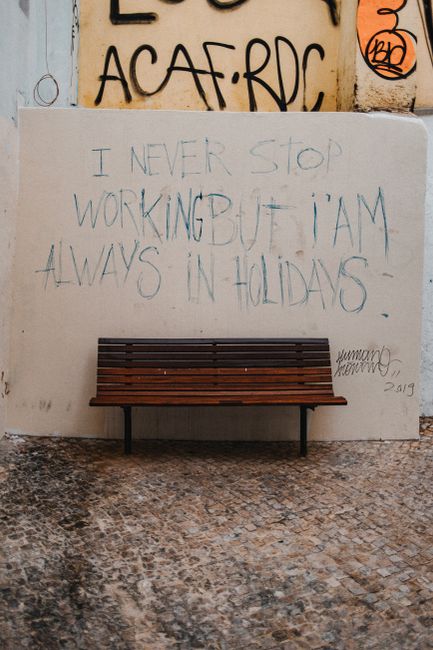 ACAF·RDC
I NEVER STOP
WORKING BUT I'AM
ALWAYS IN HOLIDAYS
2019